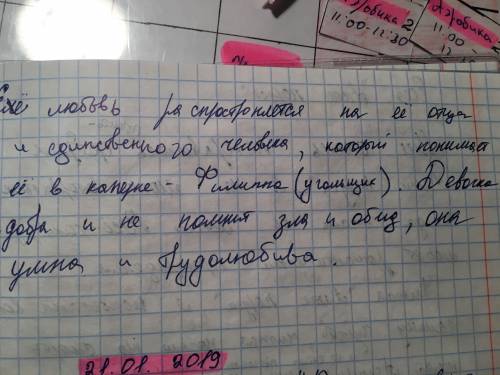 Аэробика 2
11:00-12:30
Аэробика
11:00
Её любовь распростроняется на её отца
и единственного человека, который понимает
её в каперне - Филиппа (угольщик). Девочка
добра и не помнит зла и обид, она
умна и трудолюбива.
21.01.2019